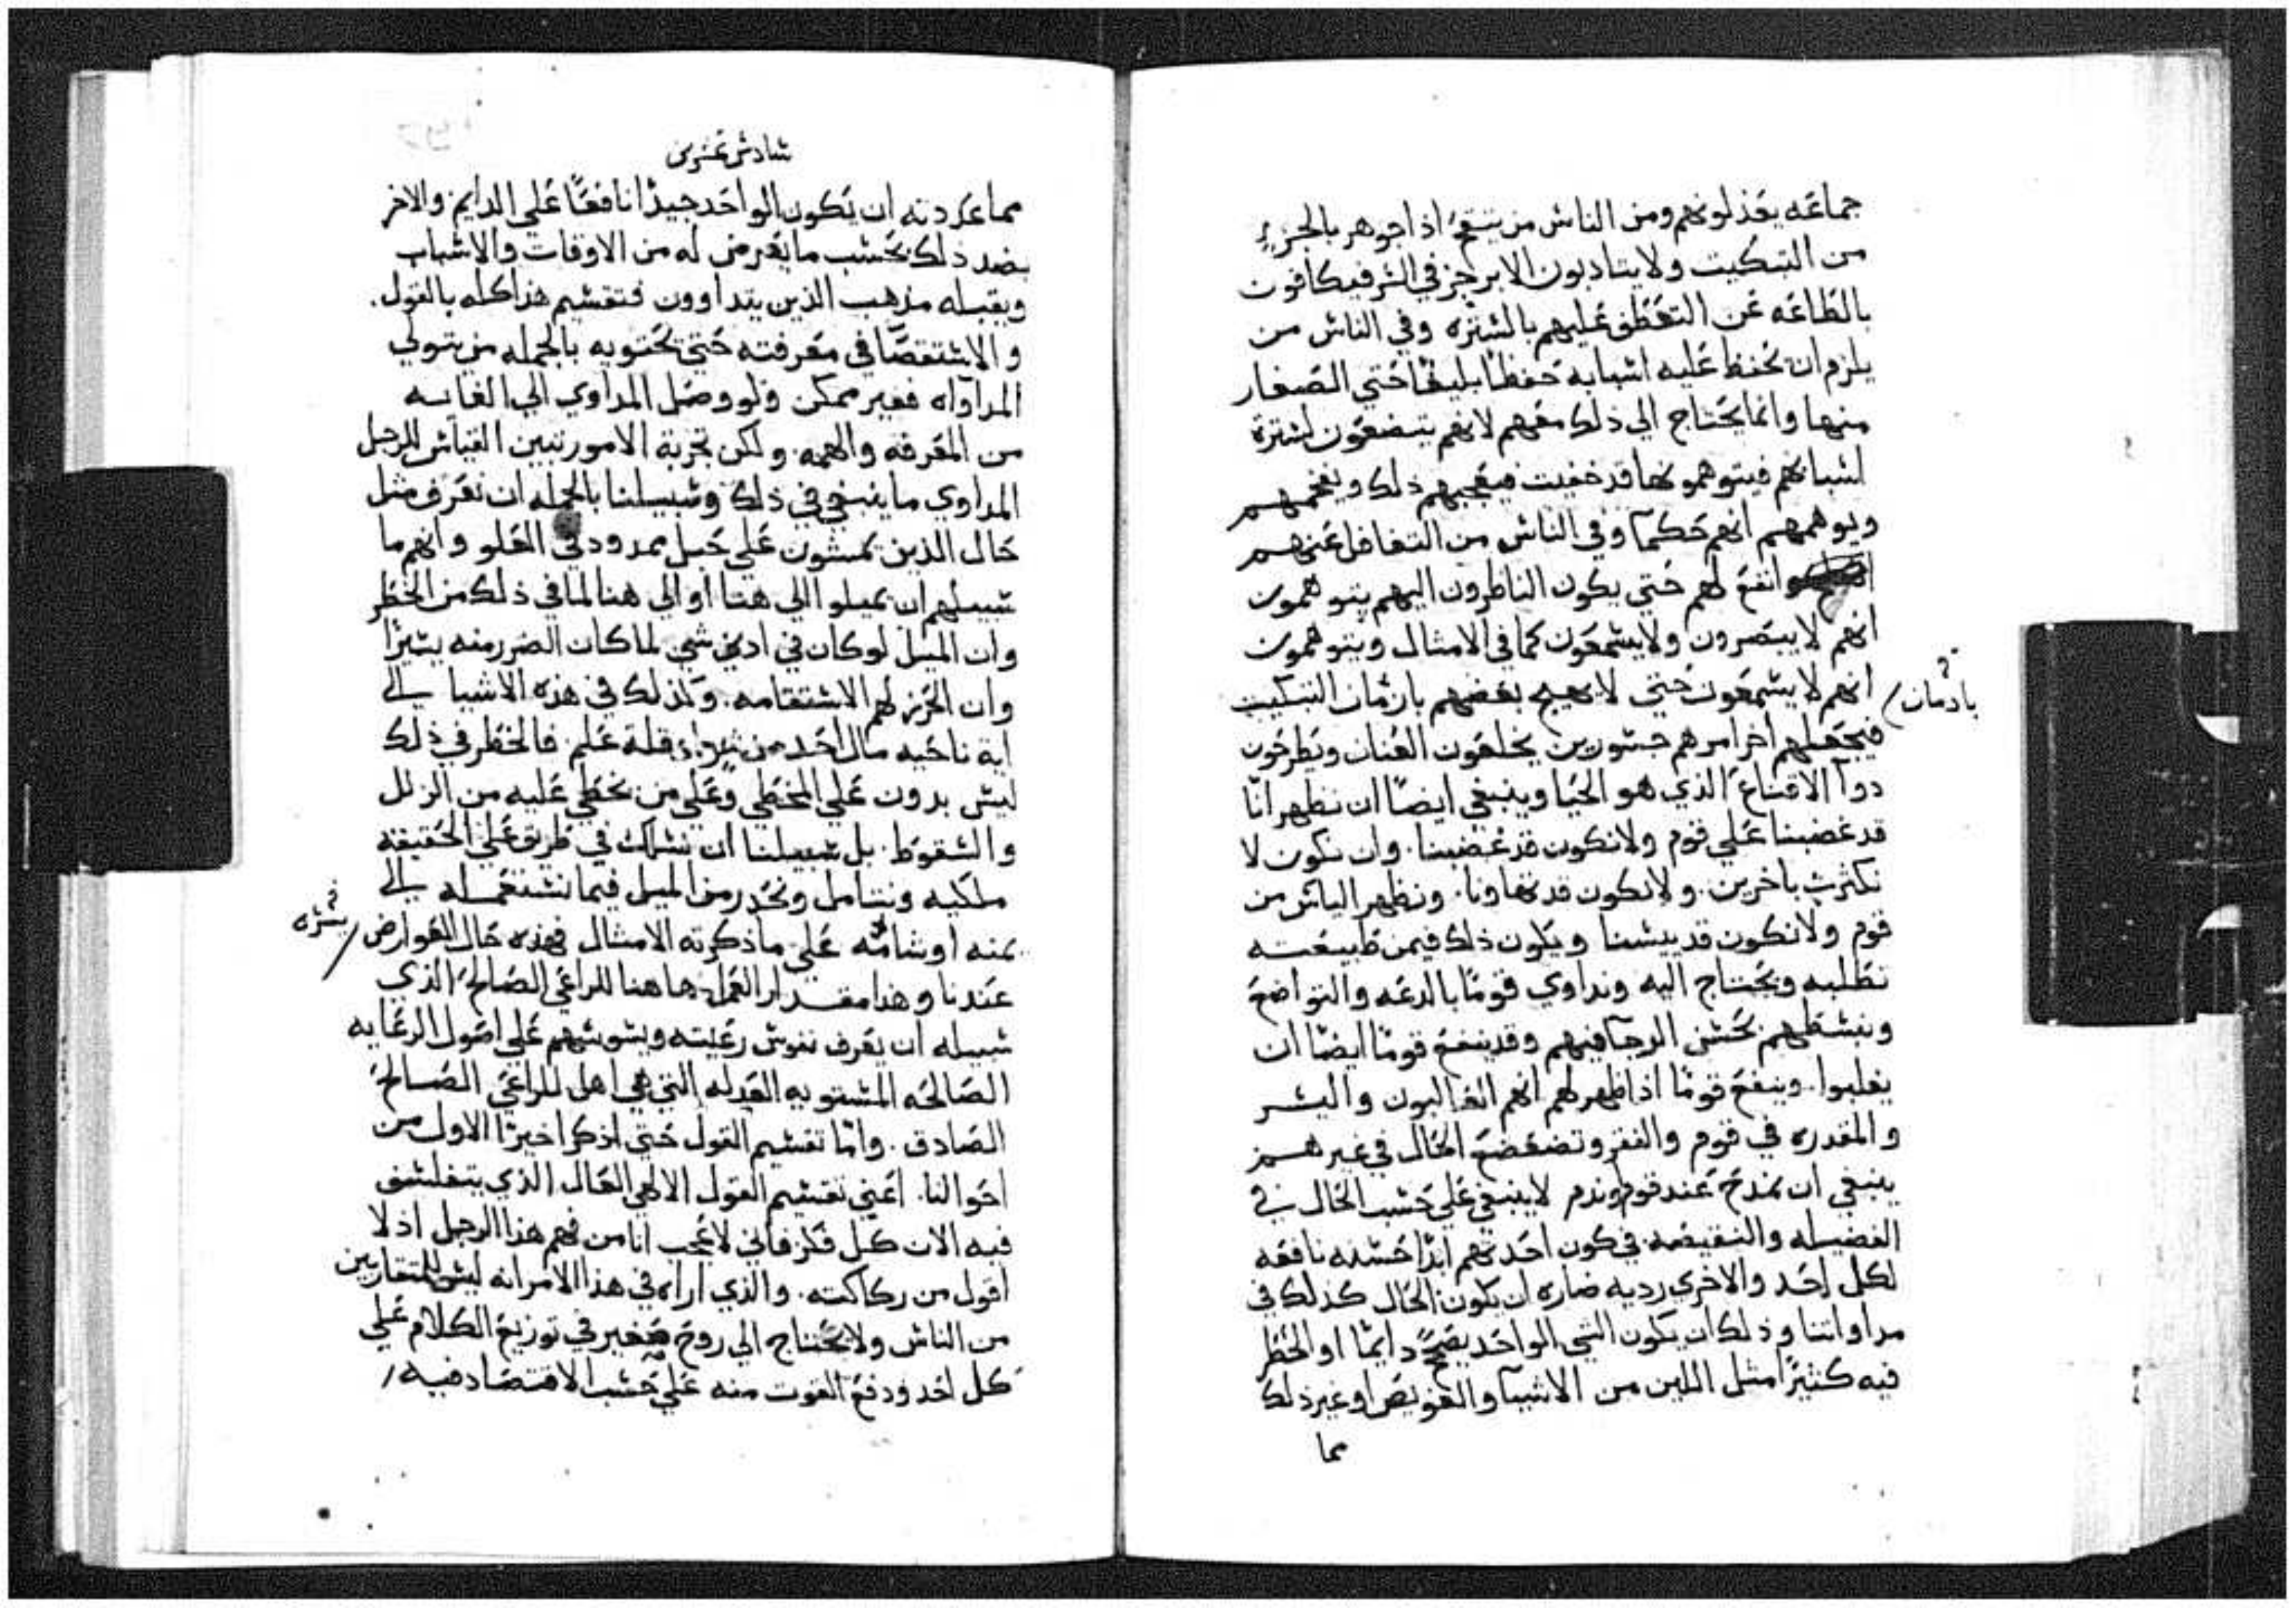 جماعه يعذلونهم ومن الناس من ينتفع اذا جوهر بالجزء
من التبكيت ولا يتادبون الا بزجر في السر فيكافون
بالطاعه عن التعطف عليهم بالستره وفي الناس من
يلزم ان تحفظ عليه اسبابه حفظا بليغا حتى الصغار
منها وانما يحتاج الي ذلك معهم لانهم يتصنعون لسترة
اسبابهم فيتوهمونها قد خفيت فيعجبهم ذلك ويفخمهم
ويوهمهم انهم حكما وفي الناس من التغافل عنهم
انفع لهم حتي يكون الناظرون اليهم يتوهمون
انهم لا يبصرون ولا يسمعون كما في الامثال ويتوهمون
انهم لا يسمعون حتي لا يهيج بعضهم بازمان التبكيت
بادمان
فيجعلهم اخر امرهم جسورين يخلعون العنان ويطرحون
دوآ الاقناع الذي هو الحيا وينبغي ايضاً ان نظهر انّا
قد غضبنا علي قوم ولا نكون قد غضبنا. وان نكون لا
نكترث باخرين. ولا نكون قد تهاونا. ونظهر الياس من
قوم ولا نكون قد يئسنا ويكون ذلك فيمن طبيعته
تطلبه وتحتاج اليه ونداوي قوماً بالدعه والتواضع
وننشطهم بحسن الرجا فيهم وقد ينفع قوماً ايضاً ان
يغلبوا. وينفع قوماً اذا ظهر لهم انهم الغالبون واليسر
والمقدره في قوم والفقر وتضعضع الحال في غيرهم
ينبغي ان يمدح عند قوم ويذم لا ينبغي علي حسب الحال في
الفضيله والنقيصه في كون احدتهم ابدًا حسنه نافعه
لكل احد والاخري رديه ضاره ان يكون الحال كذلك في
مداواتنا وذلك ان يكون الشي الواحد يصح دايمًا او الخطر
فيه كثيرًا مثل اللين من الاشيآ والتعويص او غير ذلك
مما
سادس عشرين
مما عددته ان يكون الواحد جيدًا نافعًا علي الدايم والاخر
بضد ذلك بحسب ما يعرض له من الاوقات والاسباب
ويقبله مذهب الذين يتداوون فتقسيم هذا كله بالقول.
والاستقصآ في معرفته حتي تحتويه بالجمله من يتولي
المداواه فغير ممكن ولو وصل المداوي الي الغايه
من المعرفه والهمه. ولكن تجربة الامور تبين القياس للرجل
المداوي ما ينبغي في ذلك وسبيلنا بالجمله ان نعرف مثل
حال الذين يمشون علي حبل ممدود في العلو وانهم ما
سبيلهم ان يميلوا الي هنا او الي هنا لما في ذلك من الخطر
وان الميل لو كان في ادني شي لما كان الضرر منه يسيرًا
وان الحرز لهم الاستقامه. وكذلك في هذه الاشيا الي
اية ناحيه مال احد من سوا وقلة علم. فالخطر في ذلك
ليس بدون علي المخطي وعلي من يخطي عليه من الزلل
والسقوط. بل سبيلنا ان نسلك في طريق علي الحقيقه
ملكيه ونتامل ونحذر من الميل فيما نستعمله الي
يمنه او شامه علي ما ذكرته الامثال فهذه حال العوارض
يسره
عندنا وهذا مقدار العمل هاهنا للراعي الصالح الذي
سبيله ان يعرف نفوس رعيته ويسوسهم علي اصول الرعايه
الصالحه المستويه العدله التي هي اهل للراعي الصالح
الصادق. وامّا تقسيم القول حتي اذكر اخيرًا الاول من
احوالنا. اعني تقسيم القول الالهي العال الذي يتفلسف
فيه الان كل فكر فاني لاعجب انا من فهم هذا الرجل اذ لا
اقول من ركاكته. والذي اراه في هذا الامر انه ليس للمتقاربين
من الناس ولا يحتاج الي روح صغير في توزيع الكلام علي
كل احد ودفع القوت منه علي حسب الاقتصاد فيه